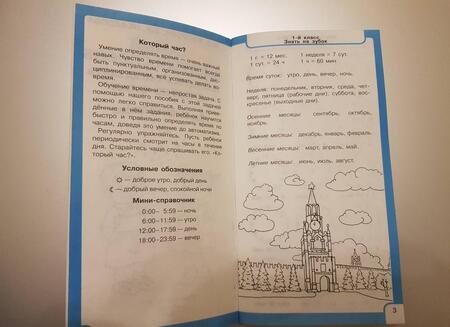 Который час?
Умение определять время — очень важный
навык. Чувство времени помогает всегда
быть пунктуальным, организованным, дис-
циплинированным, всё успевать делать во-
время.
Обучение времени — непростая задача. С
помощью нашего пособия с этой задачей
можно легко справиться. Выполняя приве-
дённые в нём задания, ребёнок научится
быстро и правильно определять время по
часам, доведя это умение до автоматизма.
Регулярно упражняйтесь. Пусть ребёнок
периодически смотрит на часы в течение
дня. Старайтесь чаще спрашивать его: «Ко-
торый час?».
Условные обозначения
— доброе утро, добрый день
— добрый вечер, спокойной ночи
Мини-справочник
0:00– 5:59 — ночь
6:00–11:59 — утро
12:00–17:59 — день
18:00–23:59 — вечер
1-й класс
Знать на зубок
1 г. = 12 мес. 1 неделя = 7 сут.
1 сут. = 24 ч 1 ч = 60 мин.
Время суток: утро, день, вечер, ночь.
Неделя: понедельник, вторник, среда, чет-
верг, пятница (рабочие дни); суббота, вос-
кресенье (выходные дни).
Осенние месяцы: сентябрь, октябрь,
ноябрь.
Зимние месяцы: декабрь, январь, февраль.
Весенние месяцы: март, апрель, май.
Летние месяцы: июнь, июль, август.
3